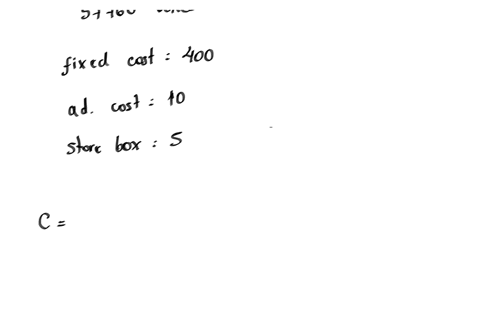 fixed cost : 400
ad. cost : 10
store box : 5
C =